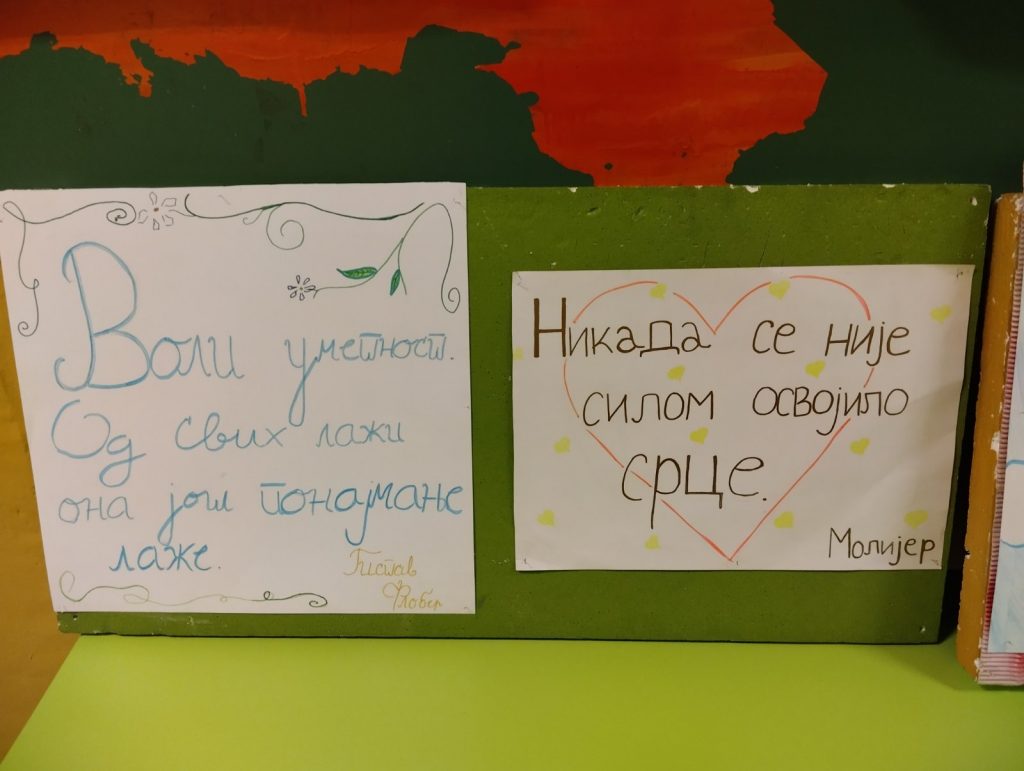 Воли уметност.
Од свих лажи
она још понајмање
лаже.
Гистав
Флобер
Никада се није
силом освојило
срце.
Молијер